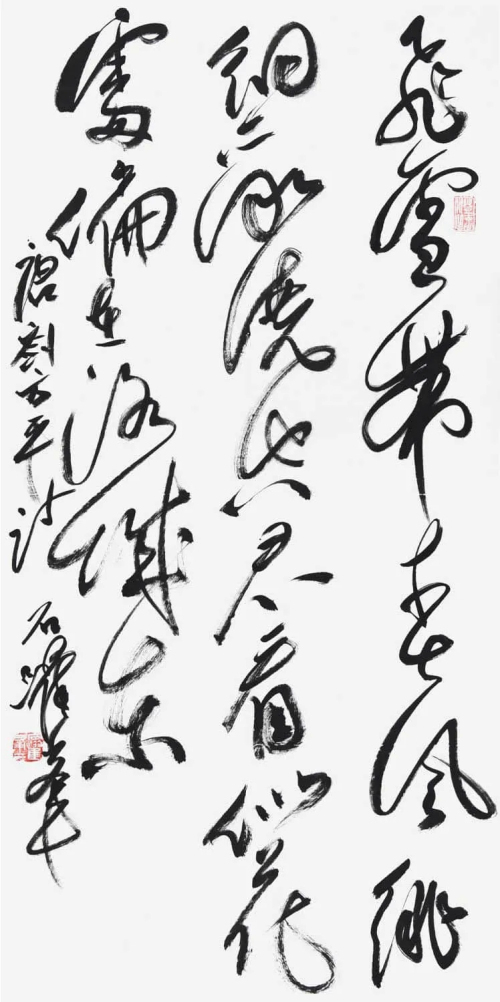 飛雪帶春風徘
徊亂繞空君看似花
處偏在洛城東
唐劉方平詩
石